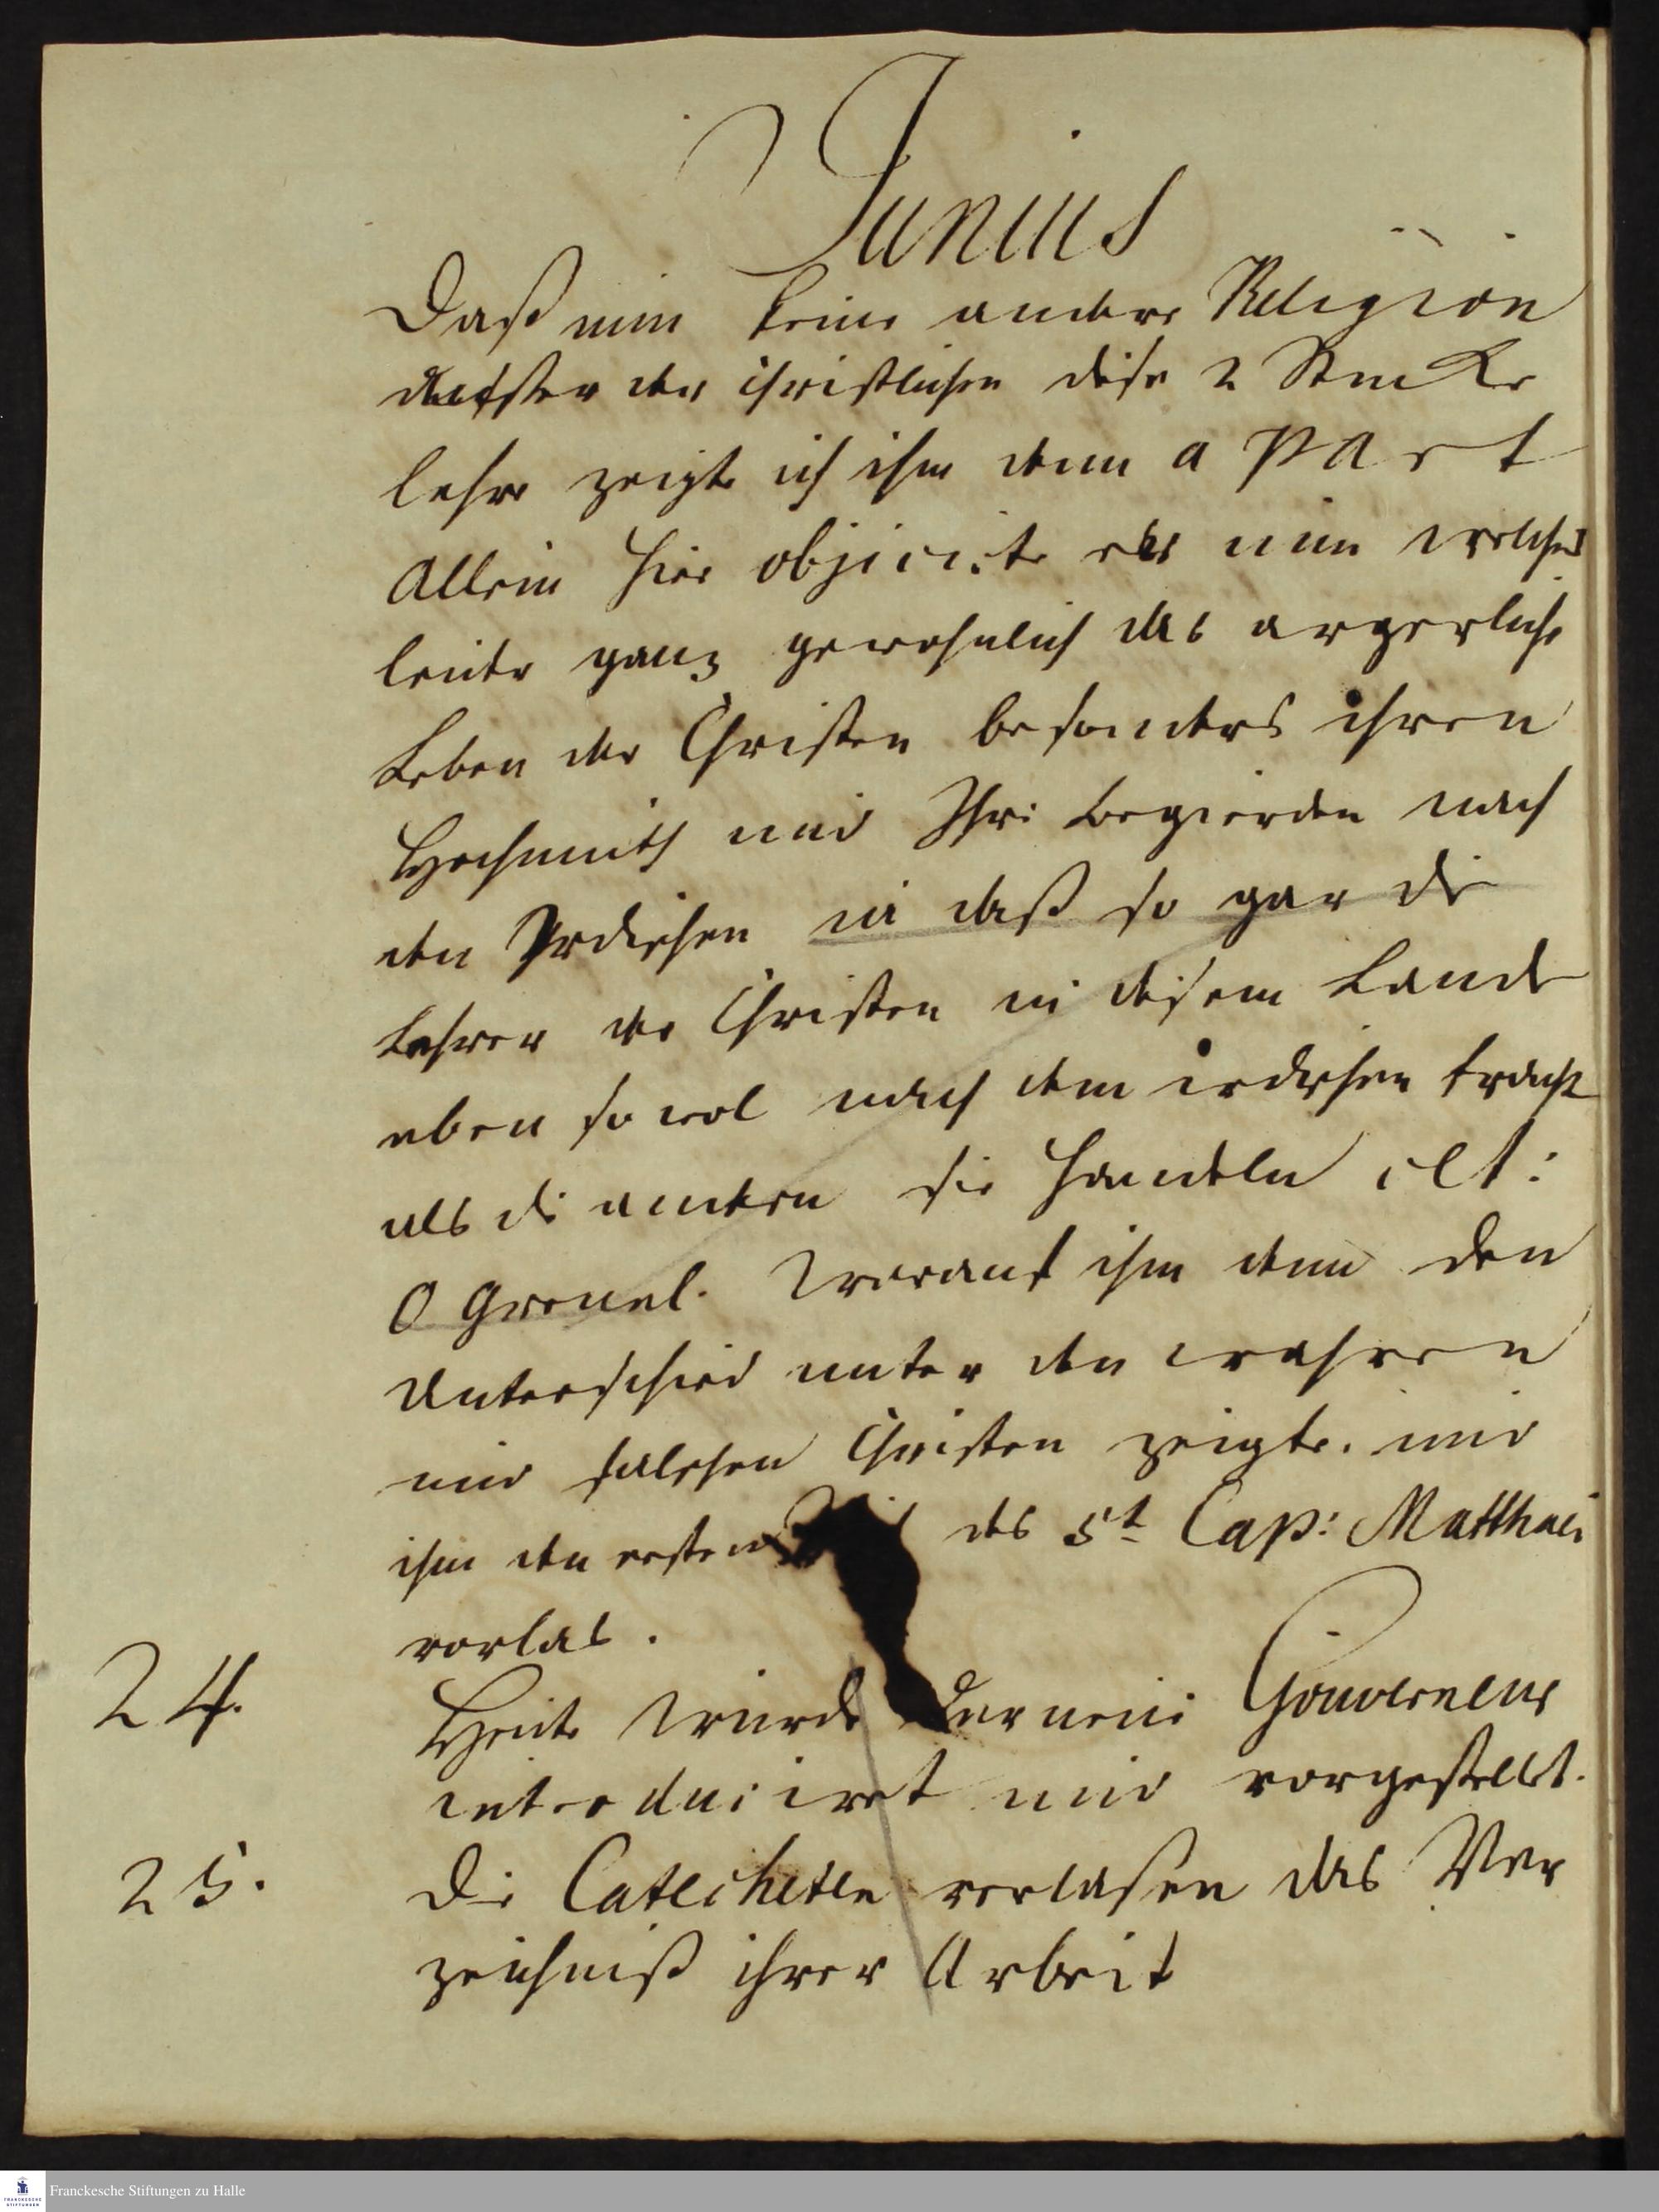 Junius
Daß nun keine andere Religion
ausser der Christlichen diese 2 Stucke
lehre zeigte ich ihm denn a part
Allein hier objicirte er nun welches
leider ganz gewohnlich das argerliche
Leben der Christen besonders ihren
Hochmuth und Ihre Begierden nach
den Irdischen
24.
daß so gar die
Lehrer der Christen in diesem Lande
eben so wol nach dem irdischen
als die andern sie handeln
O Greuel. Worauf ihm denn den
Unterschied unter den wahren
und falschen Christen zeigte. und
ihm den ersten des 5t Cap: Matthaei
vorlas.
Heute wurde der neue Gouverneur
introduciret und vorgestellt.
25.
Die Catecheten verlasen das Ver
zeichniß ihrer Arbeit
Franckesche Stiftungen zu Halle